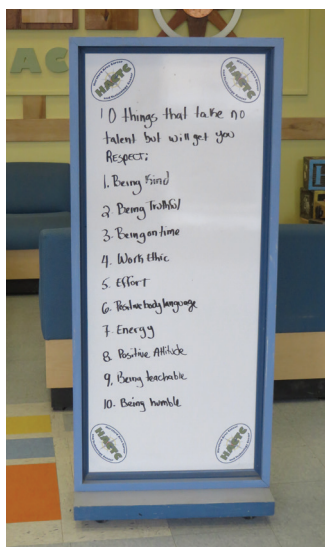 AC
HARTC
HARTC
10 things that take no
talent but will get you
Respect:
1. Being Kind
2. Being Truthful
3. Being on time
4. Work Ethic
5. Effort
6. Positive body language
7. Energy
8. Positive Attitude
9. Being teachable
10. Being humble
HARTC
HARTC